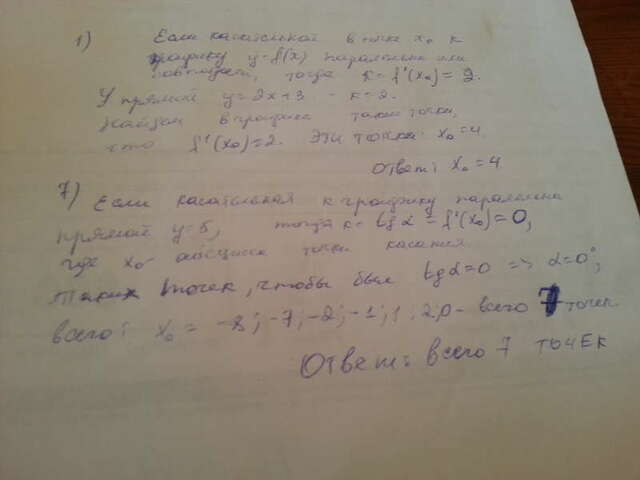 1) Если касательной в точке x₀ к
графику y=f(x) параллельна или
совпадает, тогда k=f'(x₀)=2.
У прямой y=2x+3 - k=2.
Найдём в графике такие точки,
что f'(x₀)=2. Эти точки: x₀=4.
Ответ: x₀=4
7) Если касательная к графику параллельна
прямой y=5, тогда k=tg α=f'(x₀)=0,
где x₀- абсцисса точки касания
таких точек, чтобы был tgα=0 => α=0°,
всего: x₀ = -8; -7; -2; -1; 1; 2; 0- всего 7 точек.
Ответ: всего 7 точек